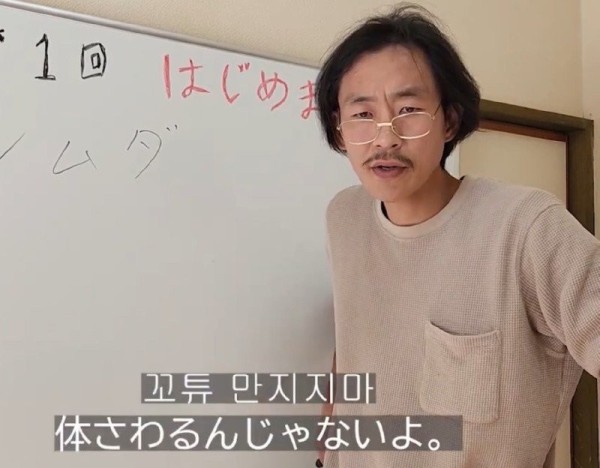 1回 はじめま
ノムダ
꼬튜 만지지마
体さわるんじゃないよ。